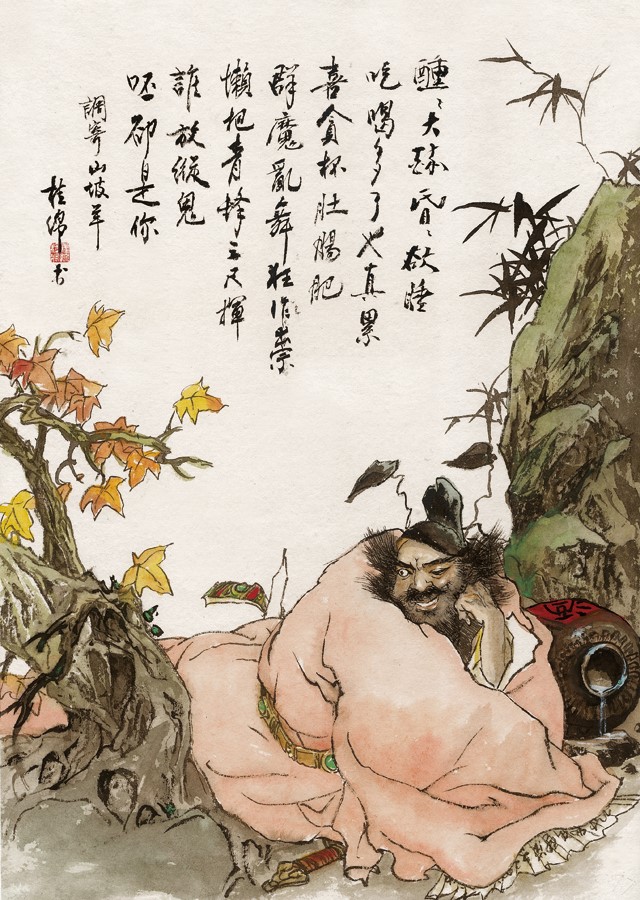 醺〻大醉昏〻欲睡
吃喝多了也真累
喜貪杯肚腸肥
群魔亂舞狂作祟
懶把青鋒三尺揮
誰放縱鬼
呸卻是你
調寄山坡羊